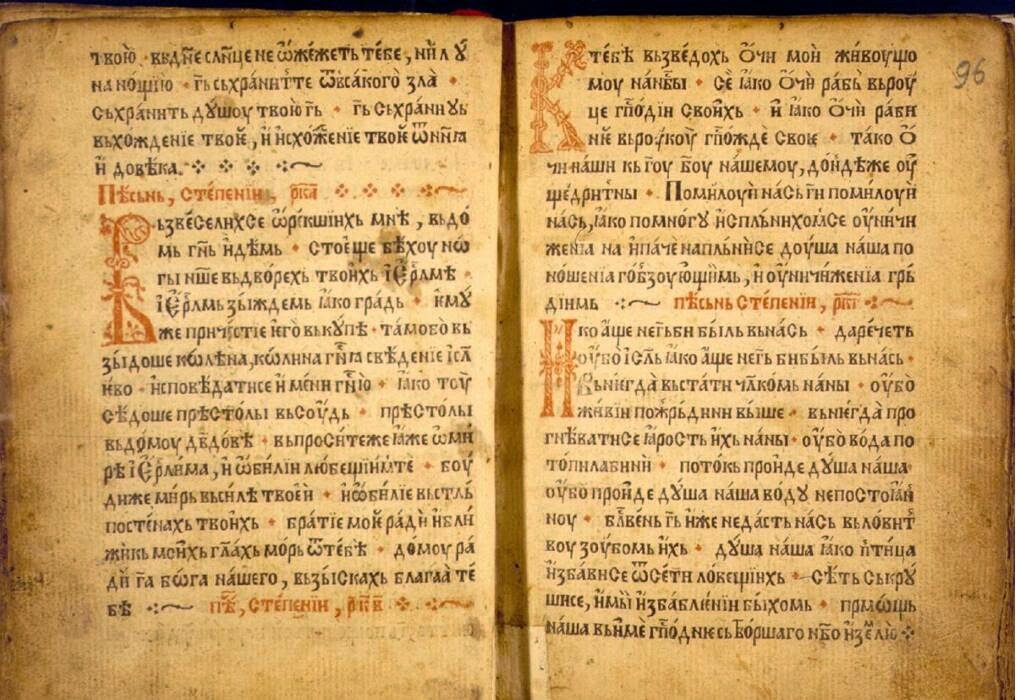 твою · вьднѐ слн҃це не ѡ҆жежеть тебе , нил ꙋ
на нощїю · гь҃ сьхранит те ѿ вьсакого зла ·
сьхранить дꙋшоу твою гь҃ · гь҃ сьхрани уь
вьхожденїе твое , и исхожⷣенїе твое ѿ нн҃ꙗ
и довѣка .
Пѣсьнь , степенїи , рк҃а
Вьзвеселихсе ѡ рекшїихь мнѣ , вьдо
мь гн҃ь идѣмь · стоеще бѣхоу но
гы нш҃е вьдворѣхь твоихь і҆ер҃лмѣ ·
іер҃лмь зыждемь ꙗко градь · ѥмꙋ
же причестїе ѥго вькꙋпѣ · тамо бо вь
зыдоше колѣна , колѣна гн҃ꙗ сведенїе ісл҃
ѥво · исповѣдатисе имени гн҃ю · ꙗко тоу
сѣдоше прѣстолы вьсоудь · прѣстолы
вьдомоу дв҃довѣ · вьпросите же ꙗже ѡ ми
рѣ іер҃лима , и ѡбилїи любещїимь те · боу
ди же мирь вьсилѣ твоей · и ѡбилїе вьстль
постенахь твоихь · братїе мое ради и бли
жнкь моихь гл҃ахь мирь ѿ тебѣ · домоу ра
ди га҃ бога нашего , вьзыскахь благаа те
бѣ · пѣⷭ , степенїи , рк҃в
96
К тебѣ вьзведохь очи мои живоущо
моу на нб҃сы · се ꙗко очи рабь вьроу
це гп҃одїи своихь · и ꙗко очи раби
нїе вь роукоу гп҃ожде своѥ · тако о
чи наши кь гоу҃ боу҃ нашемоу , дондѣже оу
щедрит ны · Помилоуи нась гп҃и помилоуи
нась , ꙗко помногꙋ исплнихомсе оуничи
женїа на ипаче напльнисе доуша наша по
ношенїа гобзоующїимь , и оуничиженїа грь
дїимь · пѣсьнь степенїи , рк҃г
Ꙗко аще не гь҃ би быль вь нась · да речеть
оубо ісл҃ь ꙗко аще не гь҃ би быль вь нась ·
Вьниегда вьстати чл҃комь на ны · оубо
живїи пожрьли ни бы ше · вьниегда про
гневатисе ꙗрость ихь на ны · оубо вода по
топила би нїи · потокь проиде душа наша
оубо проиде дꙋша наша водꙋ непостоꙗн
ноу · блв҃ень гь҃ иже не дасть нась вь ловит
воу зоубомь ихь · душа наша ꙗко птица
избависе ѿ сети ловещїихь · сѣть скрꙋ
шисе , и мы избавлѥни быхомь · пѡмощь
наша вь име гп҃одне сьтворшаго нб҃о и землю